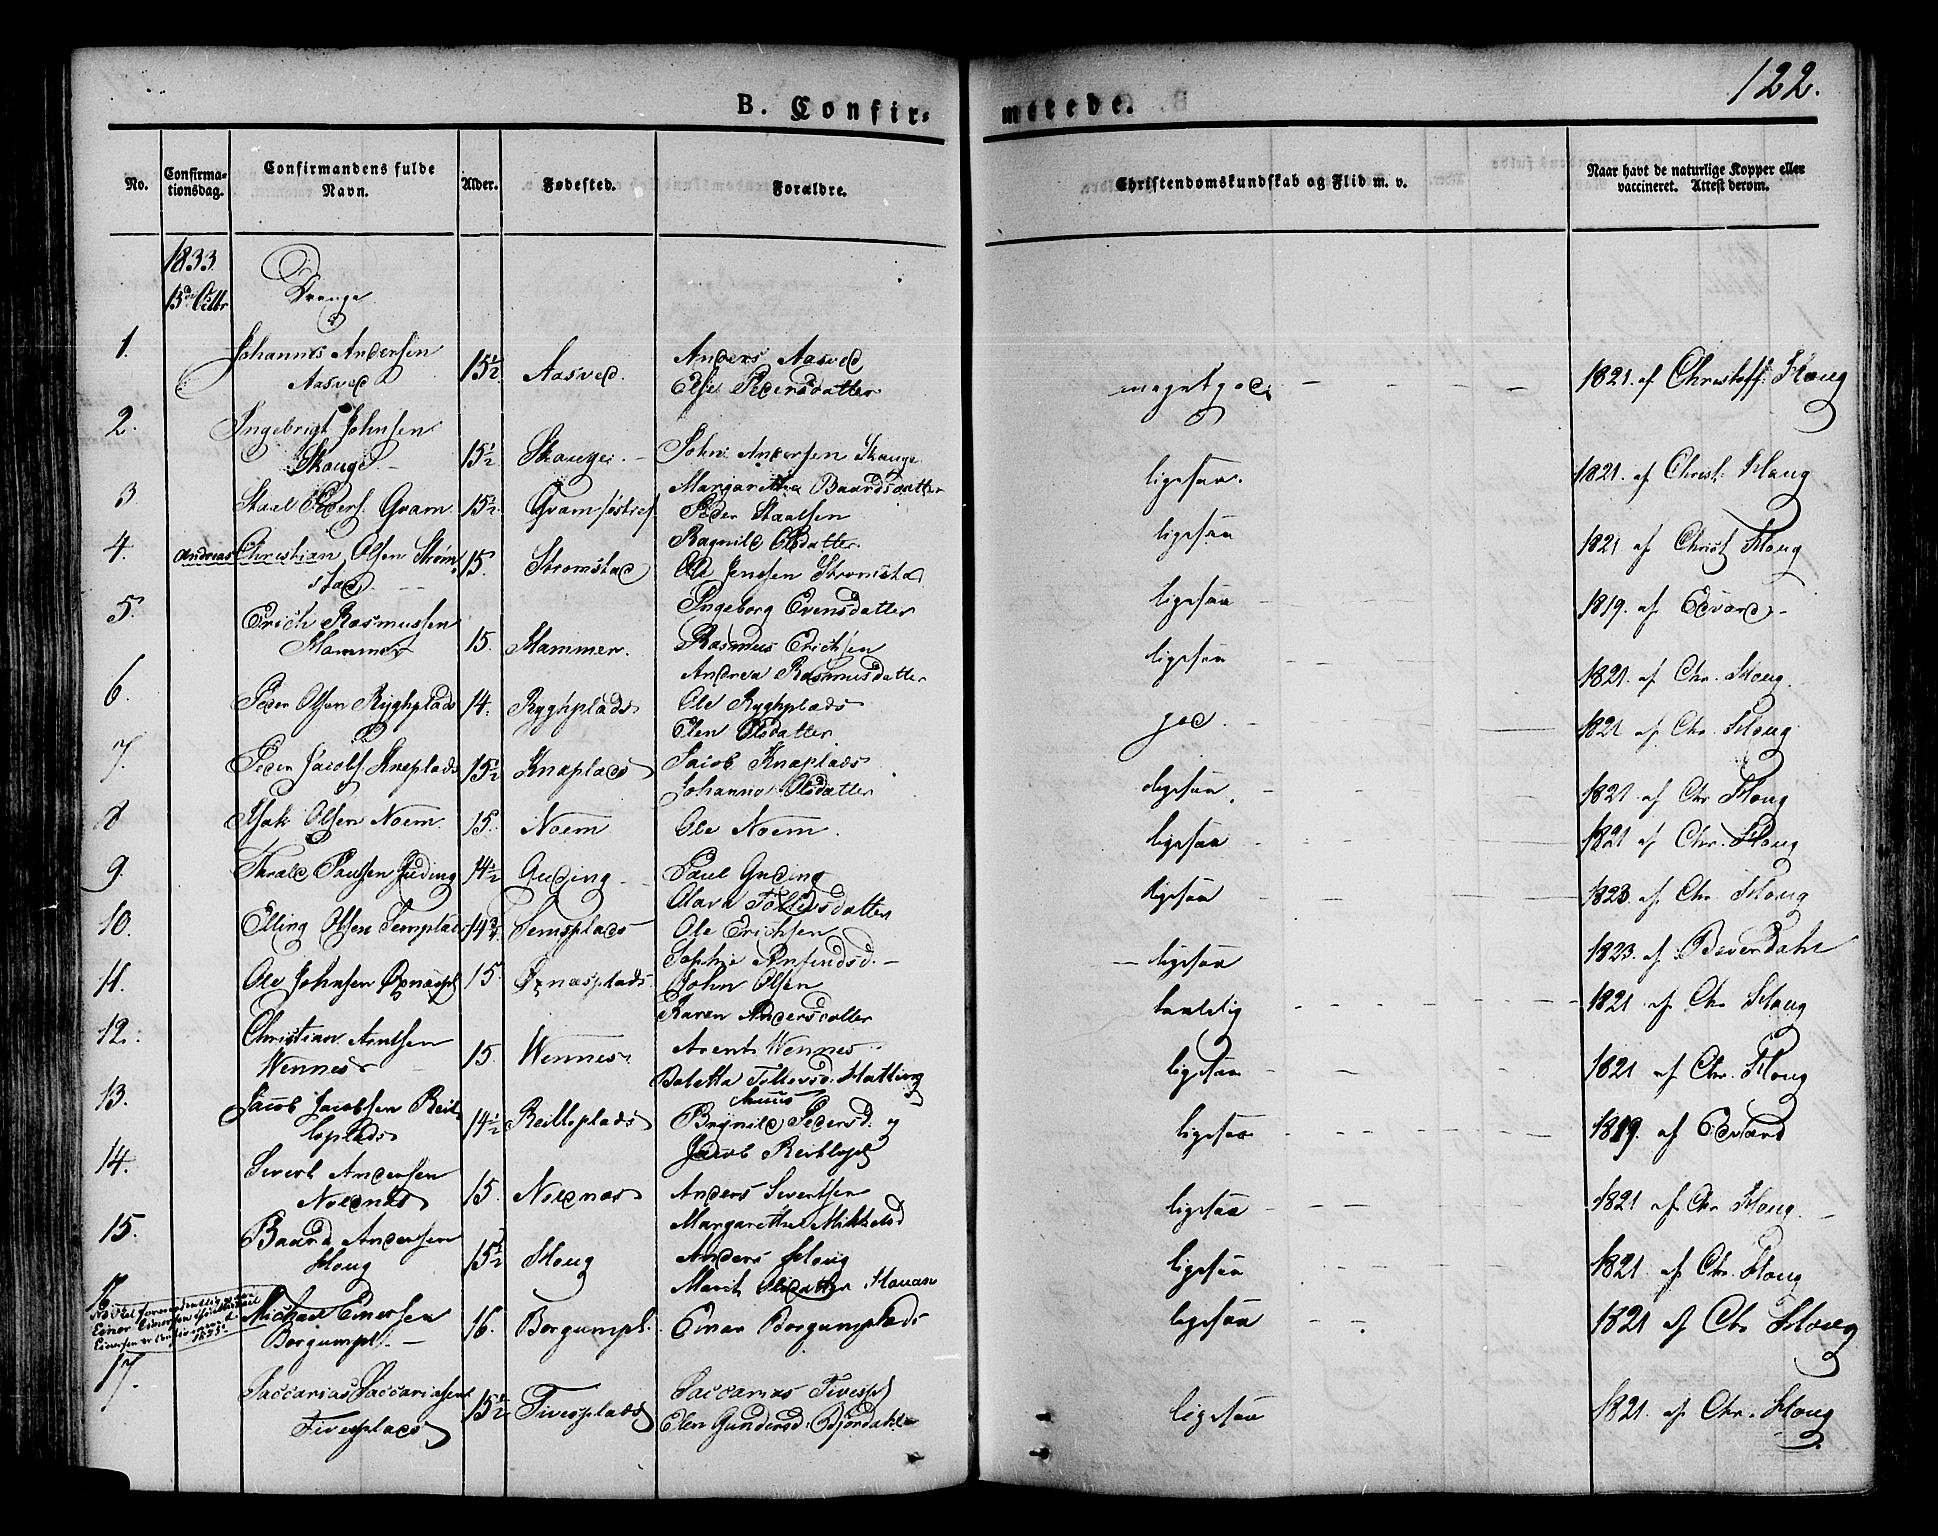 122.
B. Confir- merede.
No. Confirmationsdag. Confirmandens fulde Navn. Alder. Fødested. Forældre. Christendomskundskab og Flid m. v. Naar havt de naturlige Kopper eller vaccineret. Attest derom.
1833
13de Octbr
Drenge
1. Johannes Andersen Aasved 15½ Aasved. Anders Aasved Else Pedersdatter meget god 1821. af Christoff. Houg
2. Ingebrigt Johnsen Skouge 15½ Skouge John Andersen Skauge Margarethe Baardsdatter ligesaa. 1821. af Christ. Haug
3 Staal Peders. Gram 15½ Peder Staalsen Ragnild Olsdatter ligesaa 1821 af Christ Houg
4. Andreas Christian Olsen Strømstad 15. Stromstad Ole Jensen Ingeborg Evensdatter ligesaa 1819. af Edvard
5. Erich Rasmussen Hammer 15. Hammer. Rasmus Erichsen Andrea Rasmusdatter ligesaa 1821. af Chr. Houg.
6. Peder Olsen Ryghplads 14. Ryghplads Ole Ryghplads Elen Olsdatter god. 1821 af Chr. Houg
7. Peder Jacobs. Kneplads 15½ Knaplads Jacob Knaplads Johanna Olsdatter ligesaa 1821 af Chr Houg
8 Isak Olsen Noem 15. Noem Ole Noem. ligesaa 1821 af Chr. Houg
9. Paulsen Guding 14½ Guding Paul Guding Olava Tollefsdatter ligesaa 1823. af Chr. Houg
10. Elling Olsen Semplads 14¾ Semsplads Ole Erichsen Sophie Arnfindsd. ligesaa 1823. af Beverdahl
11. Ole Johnsen 15. John Olsen Karen Andersdatter taalelig 1821 af Chr Houg
12. Christian Arntsen Wennes 15. Wennes Arent Wennes Beletta Tollevsd. ligesaa 1821 af Chr. Houg
13. Jacob Jacobsen Reitloplads 14½ Reitloplads Brynild Pedersd. og Jacob Reitlopl ligesaa 1819. af Edvard
14. Sivert Andersen Noldnæs 15. Noldnæs Anders Sivertsen Margarethe Mikkelsd ligesaa 1821 af Chr Houg.
15. Baard Andersen Houg 15½ Houg Anders Houg Marit Olsdatter ligesaa 1821 af Chr. Houg
16 Michael Einersen Borgumpl. 16. Borgumpl. Einar Borgumplads ligesaa 1821 af Chr Houg
17. Saccarias Saccariasen Tivesplads 15½ Tivesplads Saccarias Tivespl Elen Gundersd. Bjørdahl ligesaa 1821. af Chr. Houg